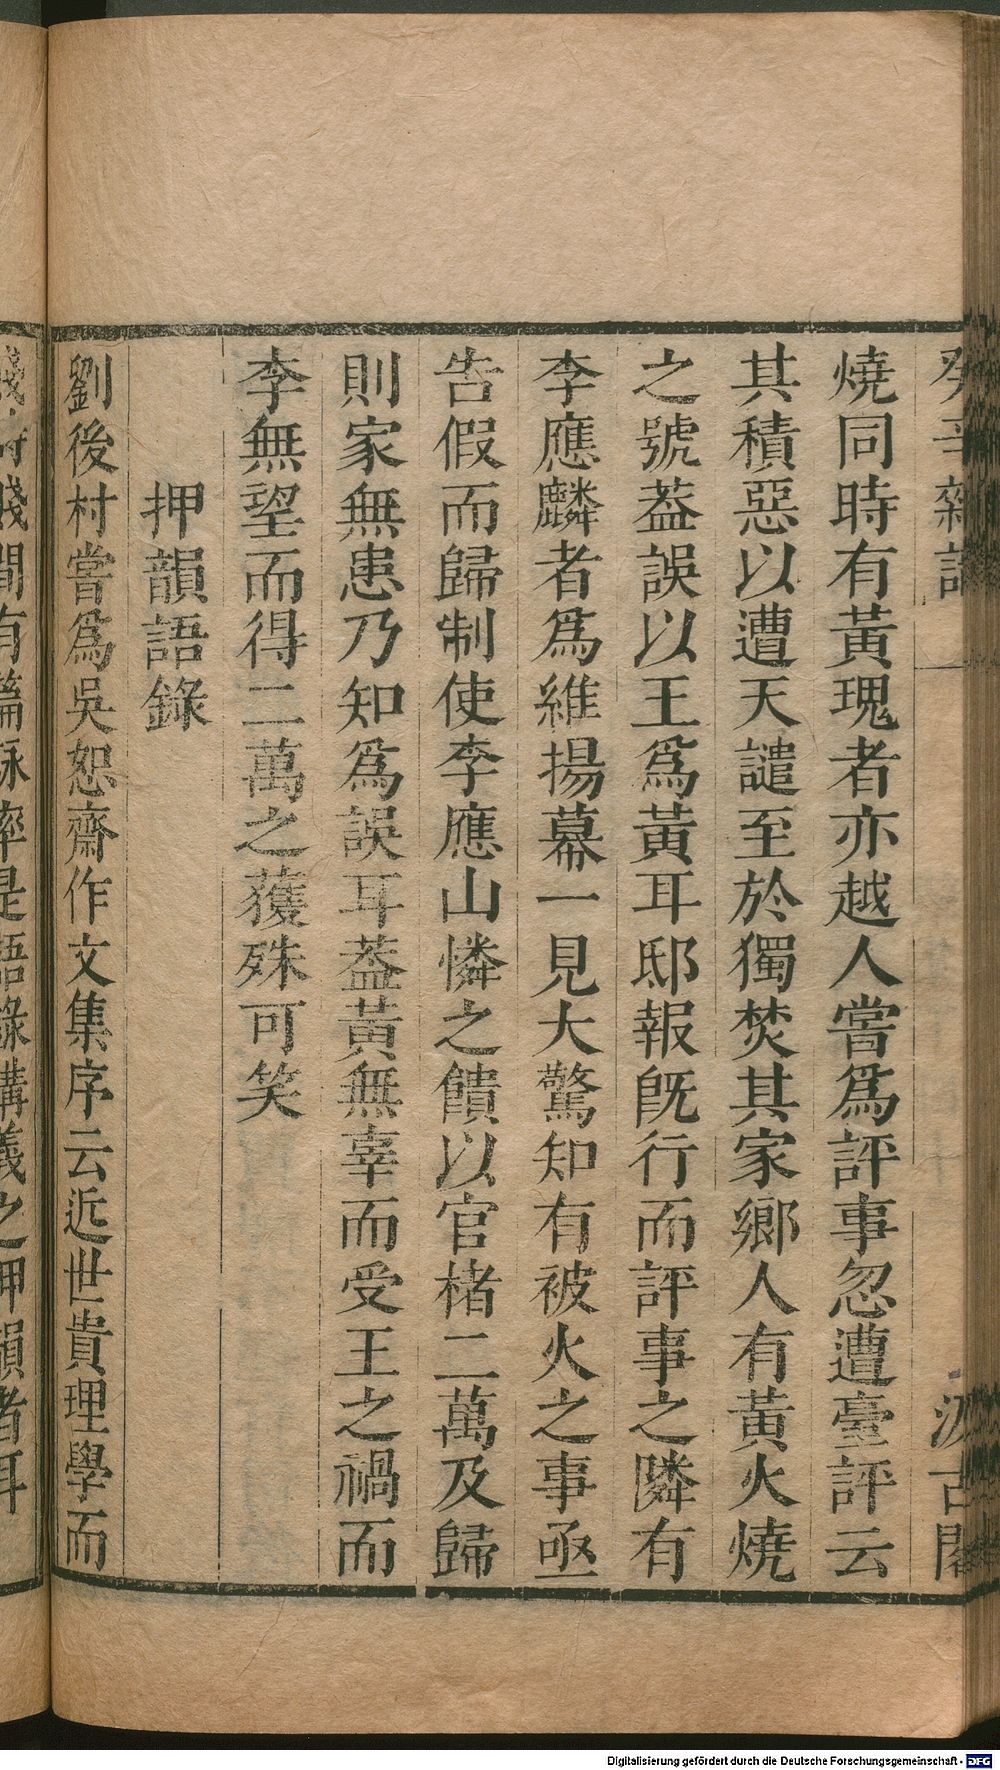 癸辛雜識
汲古閣
燒同時有黃瑰者亦越人嘗爲評事忽遭臺評云
其積惡以遭天譴至於獨焚其家鄉人有黃火燒
之號葢誤以王爲黃耳邸報旣行而評事之隣有
李應麟者爲維揚幕一見大驚知有被火之事亟
告假而歸制使李應山憐之饋以官楮二萬及歸
則家無患乃知爲誤耳葢黃無辜而受王之禍而
李無望而得二萬之獲殊可笑
押韻語錄
劉後村嘗爲吳恕齋作文集序云近世貴理學而
賤詩賤間有篇詠率是語錄講義之押韻者耳
Digitalisierung gefördert durch die Deutsche Forschungsgemeinschaft - DFG